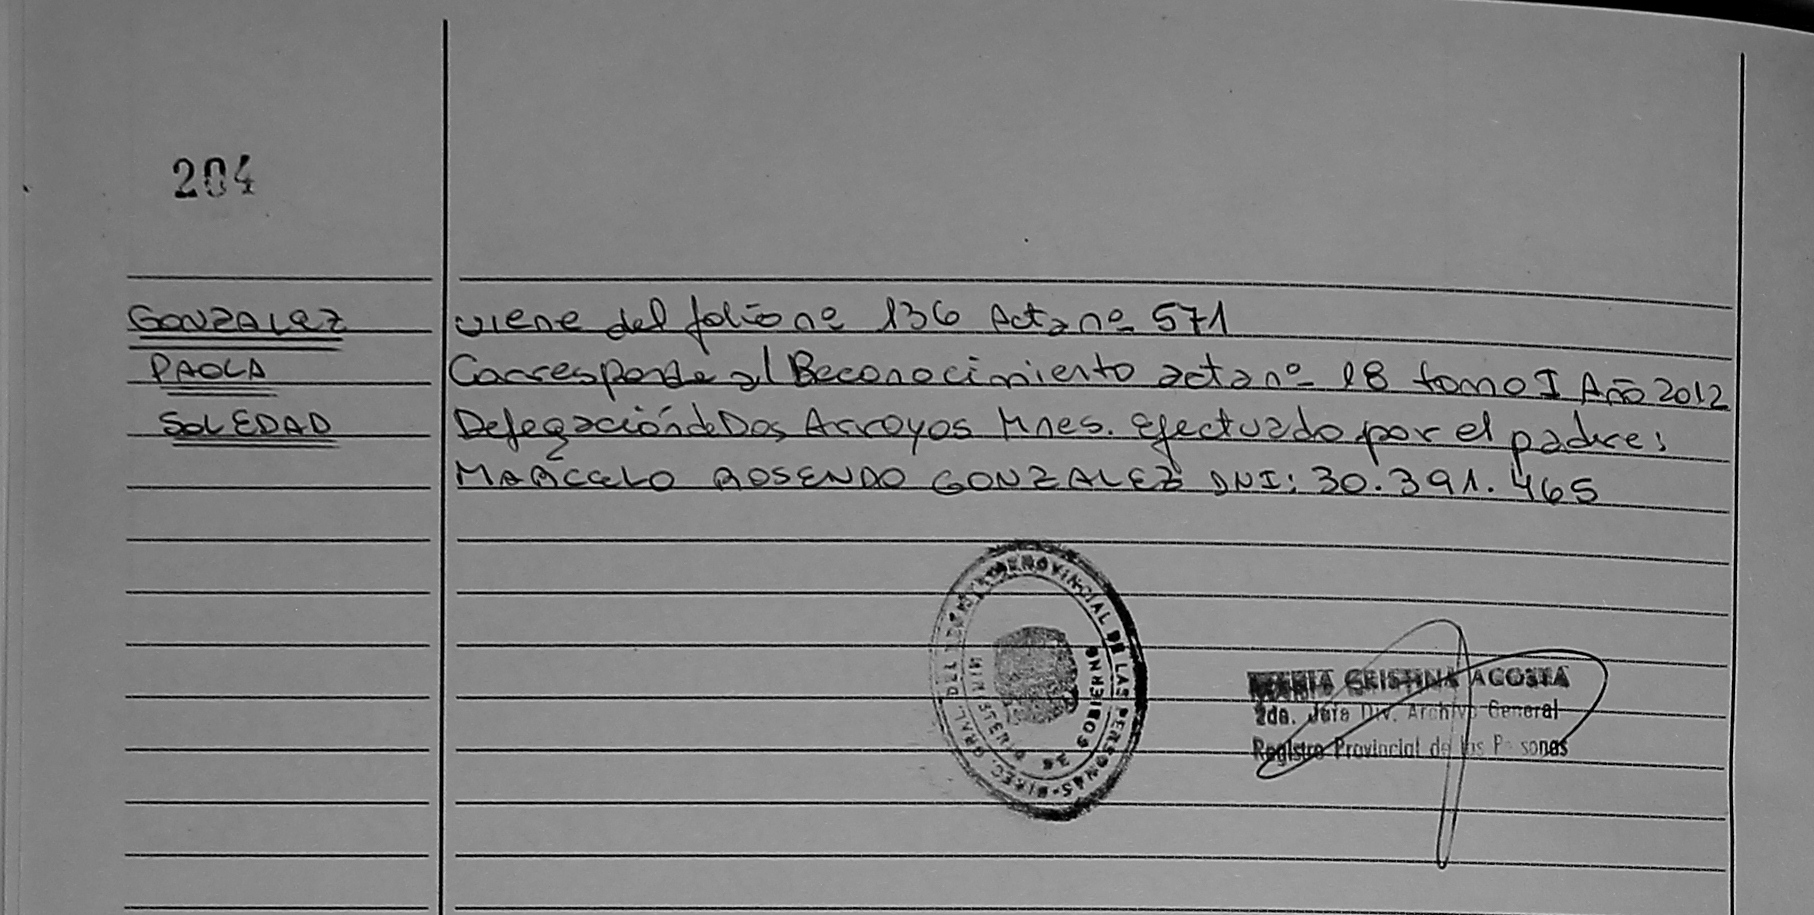 204
GONZALEZ
PAOLA
SOLEDAD
viene del folio nº 136 Acta nº 571
Corresponde al Reconocimiento acta nº 18 tomo I Año 2012
Delegación de Dos Arroyos Mnes. Efectuado por el padre:
MARCELO ROSENDO GONZALEZ DNI: 30.391.465
DIREC. GRAL. DEL REGISTRO PROVINCIAL DE LAS PERSONAS
MINISTERIO DE GOBIERNO
MARIA CRISTINA ACOSTA
2da. Jefa Div. Archivo General
Registro Provincial de las Personas